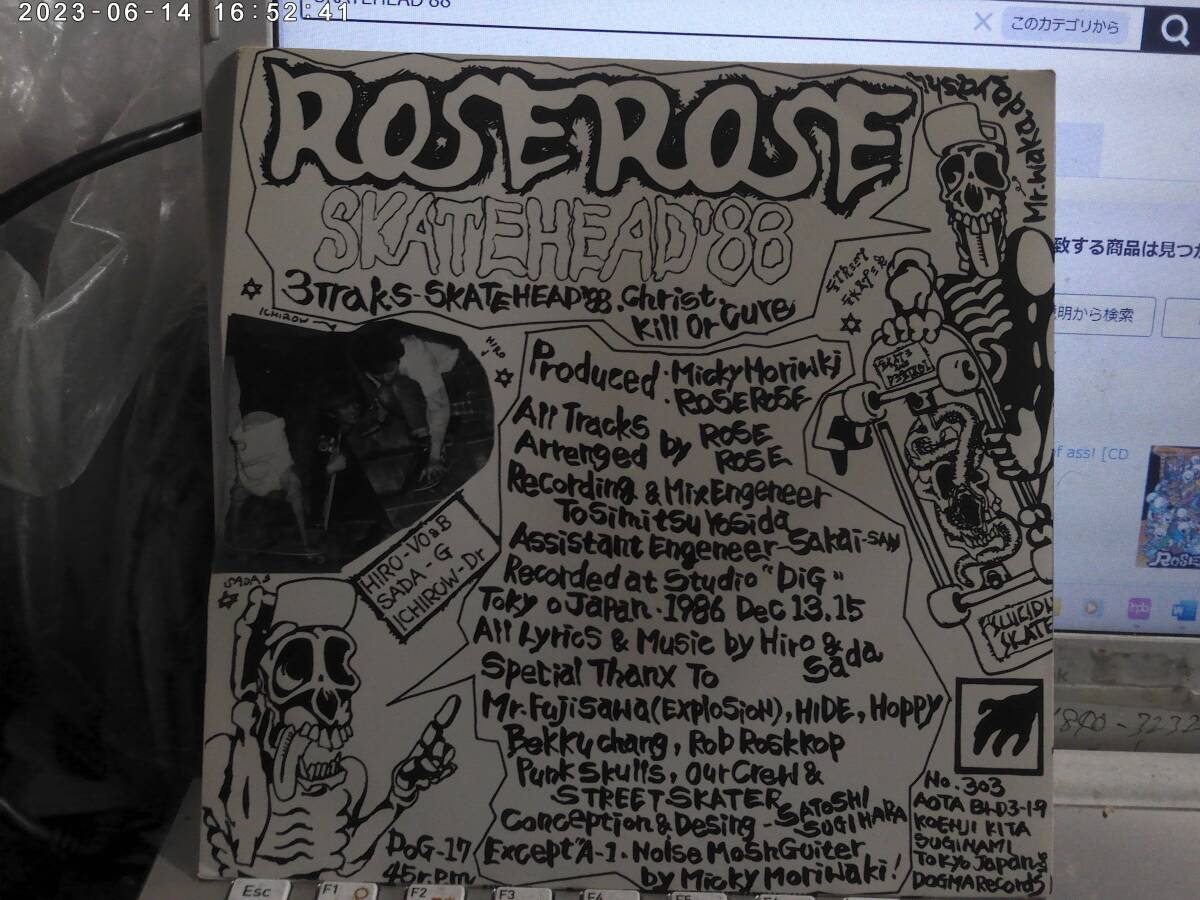 2023-06-14 16:52:41
SKATEHEAD'88
このカテゴリから
ROSEROSE
SKATEHEAD'88
3Traks-SKATEHEAD'88.Christ.
Kill Or Cure
Mr.Wakadayash
STREET
SKATER
ICHIROW
HIRO
SADA
HIRO-VO&B
SADA-G
ICHIROW-Dr
Produced.Micky Moriwki
ROSEROSE
All Tracks
Arrenged by ROSE
ROSE
Recording & MixEngeneer
Tosimitsu Yosida
Assistant Engeneer-Sakai-SAN
Recorded at Studio "DiG"
Tokyo Japan.1986 Dec 13.15
All Lyrics & Music by Hiro &
Sada
Special Thanx To
Mr.Fujisawa(EXPloSioN), HIDE, Hoppy
Bekky chang, Rob Roskkop
Punk Skulls, Our Crew &
STREET SKATER
Conception & Desing-SATOSHI
SUGIHARA
Except "A-1.Noise MoshGuiter
by Micky Moriwaki!
DOG-17
45r.pm
SUICIDE
SKATE
No.303
AOTA BLD3-1-9
KOENJI KITA
SUGINAMI
Tokyo Japan
DOGMA Records
致する商品は見つか
明から検索
of ass! [CD
ROSE
hpb
W
Esc
F1
F2
F3
F4
F5